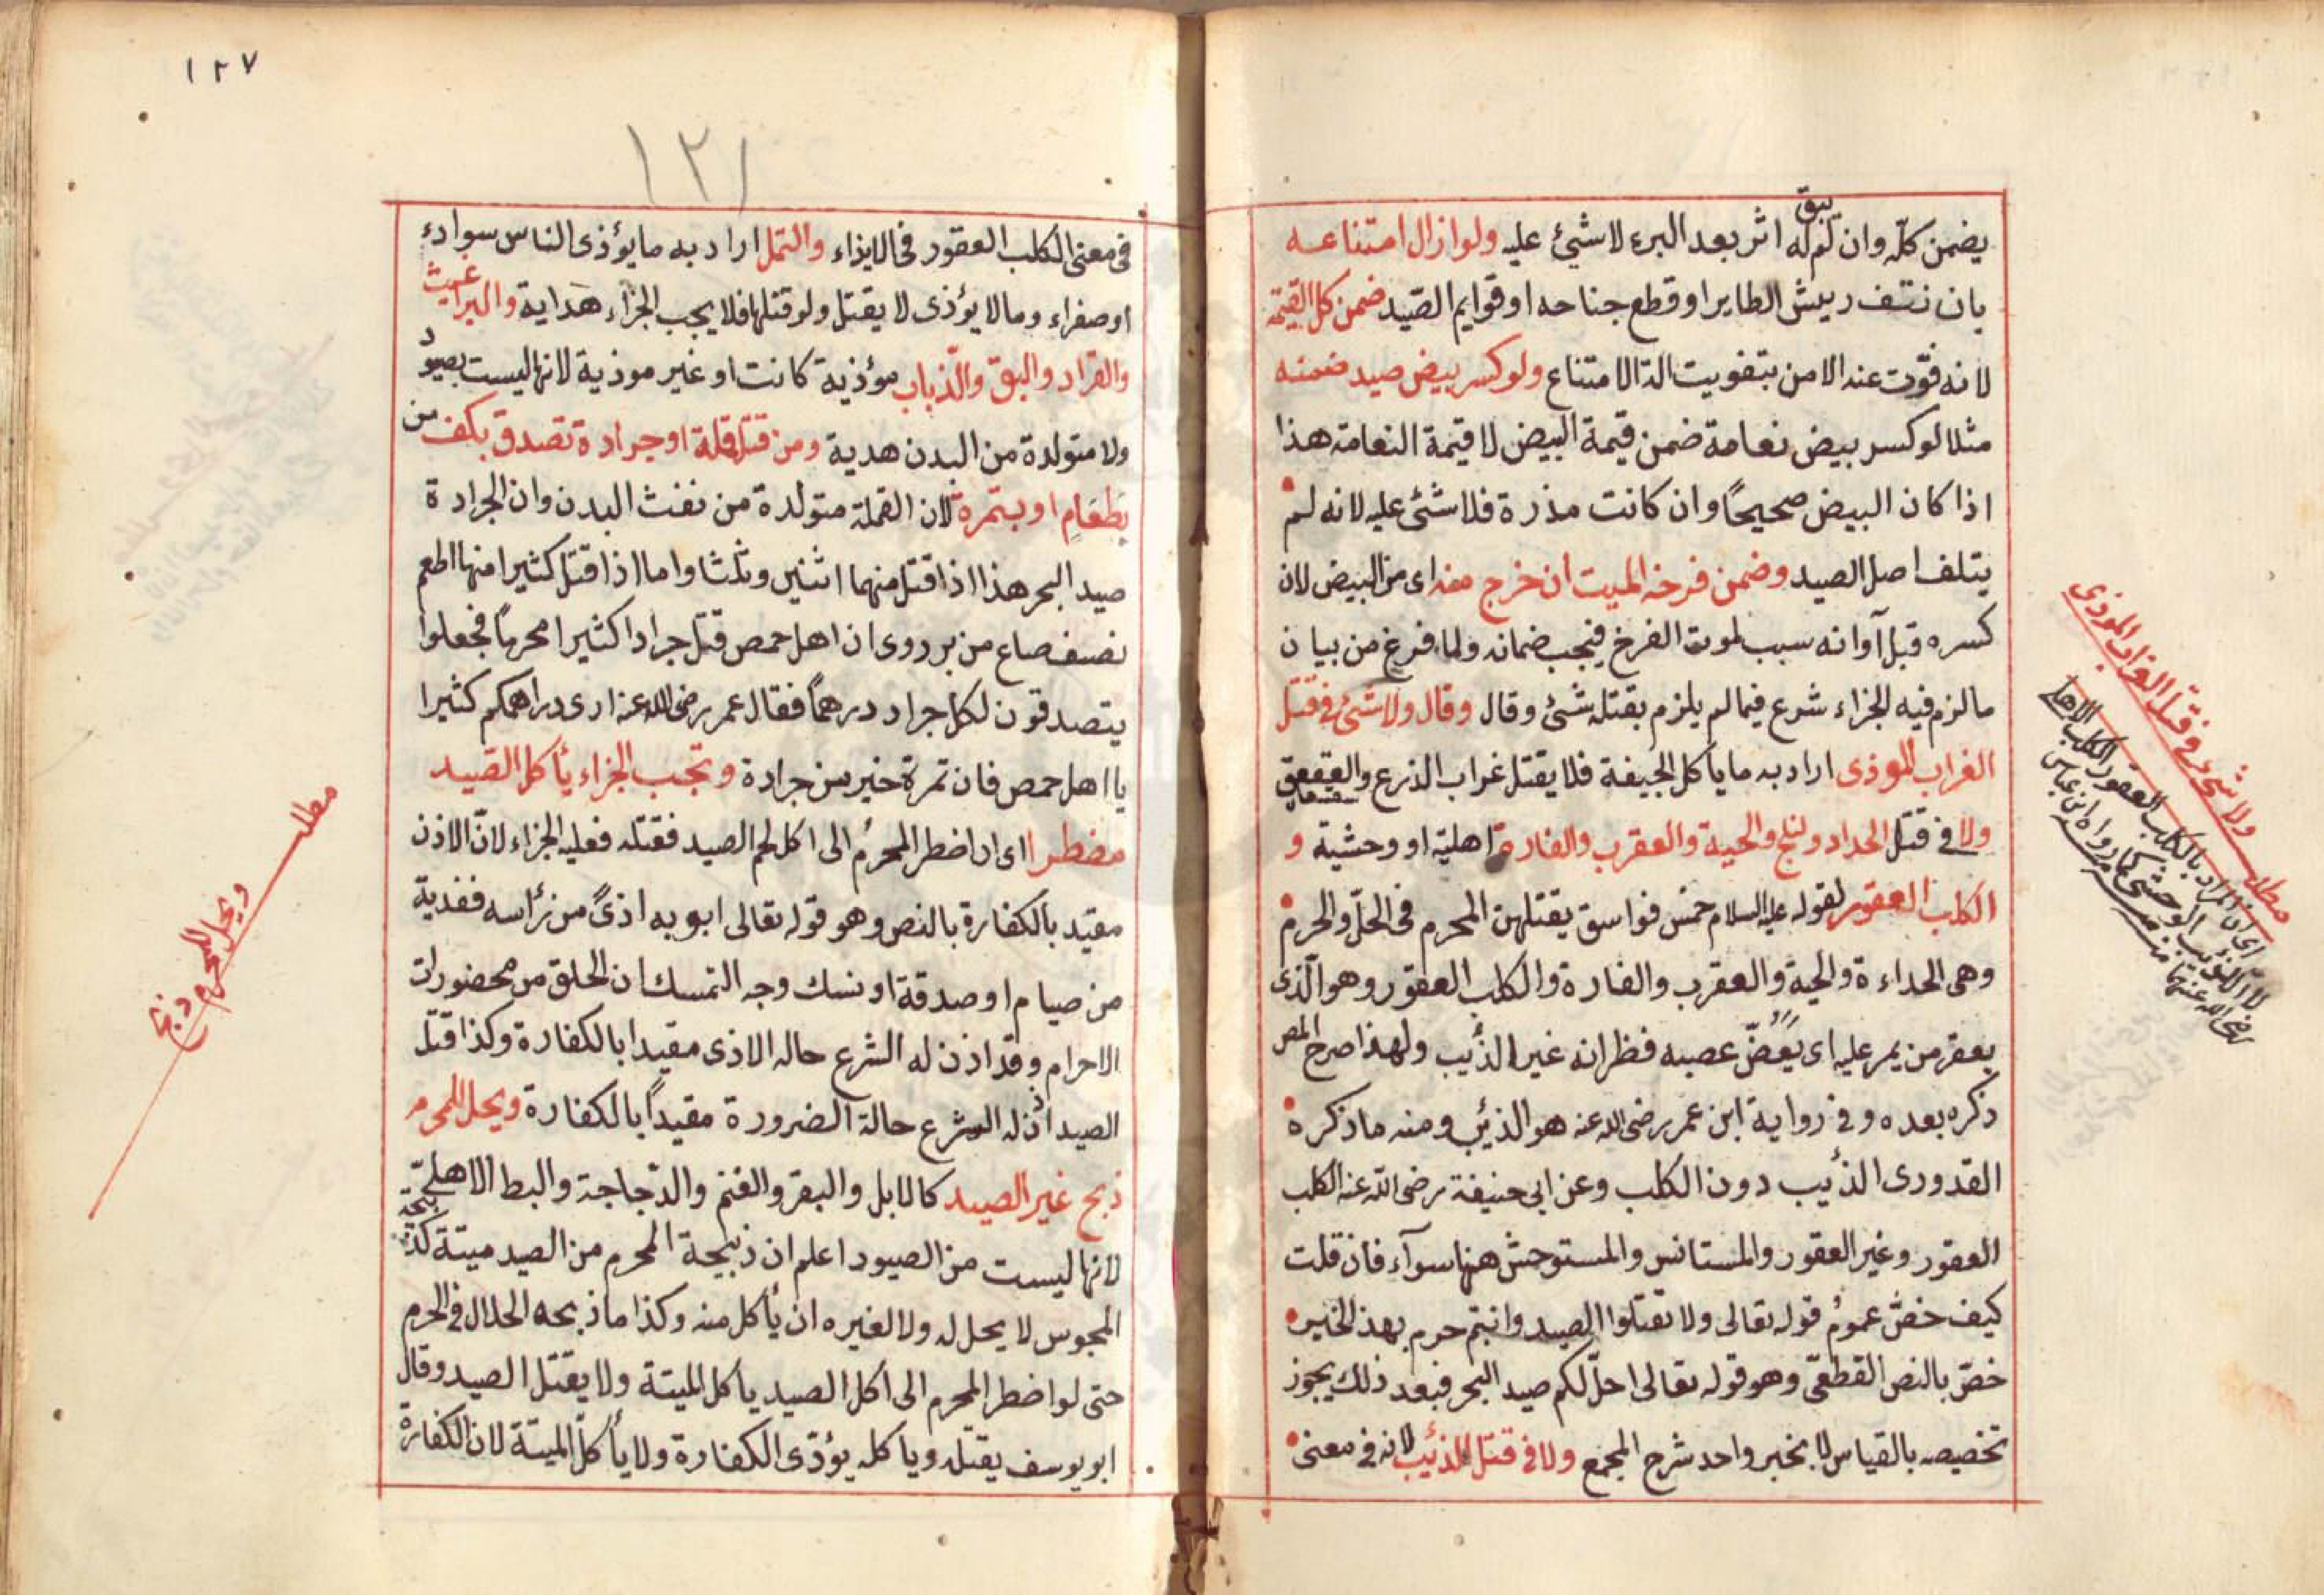 يضمن كلّه وان لم يبق له اثر بعد البرء لا شيئ عليه ولو ازال امتناعه
بان نتف ريش الطاير او قطع جناحه او قوايم الصّيد ضمن كل القيمة
لانه فوّت عنه الامن بتفويت الة الامتناع ولو كسر بيض صيد ضمنه
مثلا لو كسر بيض نعامة ضمن قيمة البيض لا قيمة النعامة هذا
اذا كان البيض صحيحًا وان كانت مذرة فلا شئ عليه لانه لم
يتلف اصل الصيد وضمن فرخه الميت ان خرج منه اى من البيض لان
كسره قبل آوانه سبب لموت الفرخ فيجب ضمانه ولما فرغ من بيان
ما لزم فيه الجزاء شرع فيما لم يلزم بقتله شئ وقال وقال ولا شئ فى قتل
الغراب الموذى اراد به ما يأكل الجيفة فلا يقتل غراب الذرع والعقعق
ولا فى قتل الحداد والحية والعقرب والفارة اهلية او وحشية و
الكلب العقور لقوله عليه السلام خمس فواسق يقتلهن المحرم فى الحلّ والحرم
وهى الحداءة والحية والعقرب والفارة والكلب العقور وهو الّذى
يعقر من يمر عليه اى يعضّ عصبه فظر انه غير الذئيب ولهذا صرح المص
ذكره بعده وفى رواية ابن عمر رضى الله عنه هو الذئيب ومنه ما ذكره
القدورى الذئيب دون الكلب وعن ابى حنيفة رضى الله عنه الكلب
العقور وغير العقور والمستانس والمستوحش منها سوآء فان قلت
كيف خصّ عموم قوله تعالى ولا تقتلوا الصيد وانتم حرم بهذ الخبر
خصّ بالنص القطعّى وهو قوله تعالى احلّ لكم صيد البحر فبعد ذلك يجوز
تخصيصه بالقياس لا بخبر واحد شرح المجمع ولا فى قتل الذئيب لانه فى معنى
مطلب ولا شئ فى قتل الغراب الموذى
اى ان المراد بالكلب العقور الكلب الاهلى
لا الذئيب الوحشى كما رواه ابن عباس
رضى الله عنهما
١٢٧
١٢١
فى معنى الكلب العقور فى الايذاء والنمل اراد به ما يؤذى الناس سوادء
او صفراء وما لا يؤذى لا يقتل ولو قتلها فلا يجب الجزاء هداية والبراغيث
والقراد والبق والذّباب مؤذية كانت او غير موذية لانها ليست بصيود
ولا متولدة من البدن هدية ومن قتل قملة او جرادة تصدق بكف من
بطعام او بتمرة لان القملة متولدة من نفث البدن وان الجرادة
صيد البحر هذا اذا قتل منهما اثنين وثلثا واما اذا قتل كثيرا منها اطعم
نصف صاع من بر روى ان اهل حمص قتل جرادا كثيرا محرمًا فجعلوا
يتصدقون لكل جراد درهمًا فقال عمر رضى الله عنه ارى دراهمكم كثيرا
يا اهل حمص فان تمرة خير من جرادة وتجب الجزاء يأكل الصّيد
مضطرا اى ان اضطر المحرم الى اكل لحم الصيد فقتله فعليه الجزاء لانّ الاذن
مقيّد بالكفارة بالنص وهو قوله تعالى ابو به اذىً من رأسه ففدية
من صيام او صدقة او نسك وجه التمسك ان الحلق من محضورات
الاحرام وقد اذن له الشرع حاله الاذى مقيدا بالكفارة وكذا قتل
الصيد اذن له الشرع حالة الضرورة مقيداً بالكفارة ويحل للمحرم
ذبح غير الصيد كالابل والبقر والغنم والدّجاجة والبط الاهلىّ
لانها ليست من الصيود اعلم ان ذبيحة المحرم من الصيد ميتة كذبيحة
المجوس لا يحل له ولا لغيره ان يأكل منه وكذا ما ذبحه الحلال فى الحرم
حتى لو اضطر المحرم الى اكل الصيد يأكل الميتة ولا يقتل الصيد وقال
ابو يوسف يقتله ويأكله يؤدّى الكفارة ولا يأكل الميتة لان الكفارة
مطلب
ويحل للمحرم ذبح